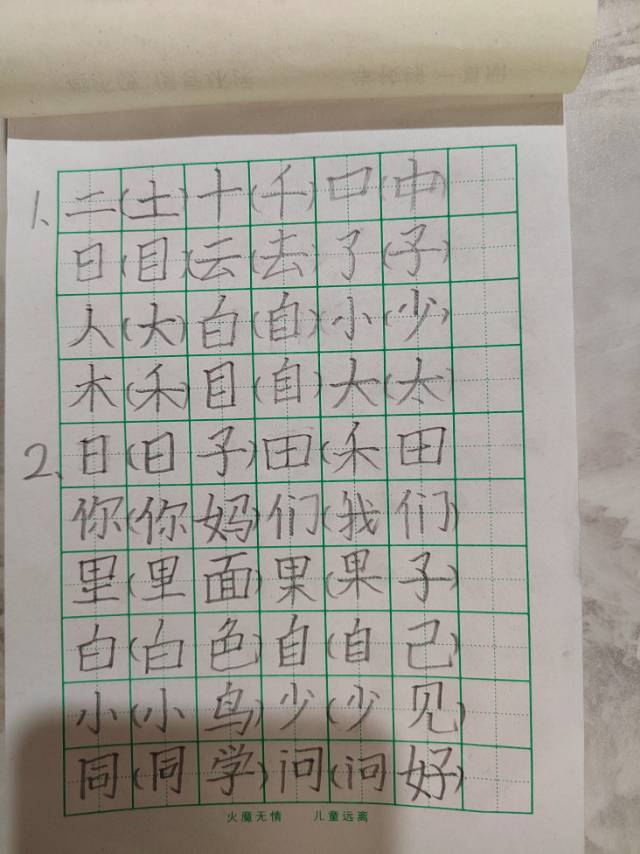 1、二(土)十(千)口(中)
日(目)云(去)了(子)
人(大)白(自)小(少)
木(禾)目(自)大(太)
2、日(日子)田(禾田
你(你妈)们(我们)
里(里面)果(果子)
白(白色)自(自己)
小(小鸟)少(少见)
同(同学)问(问好)
火魔无情 儿童远离